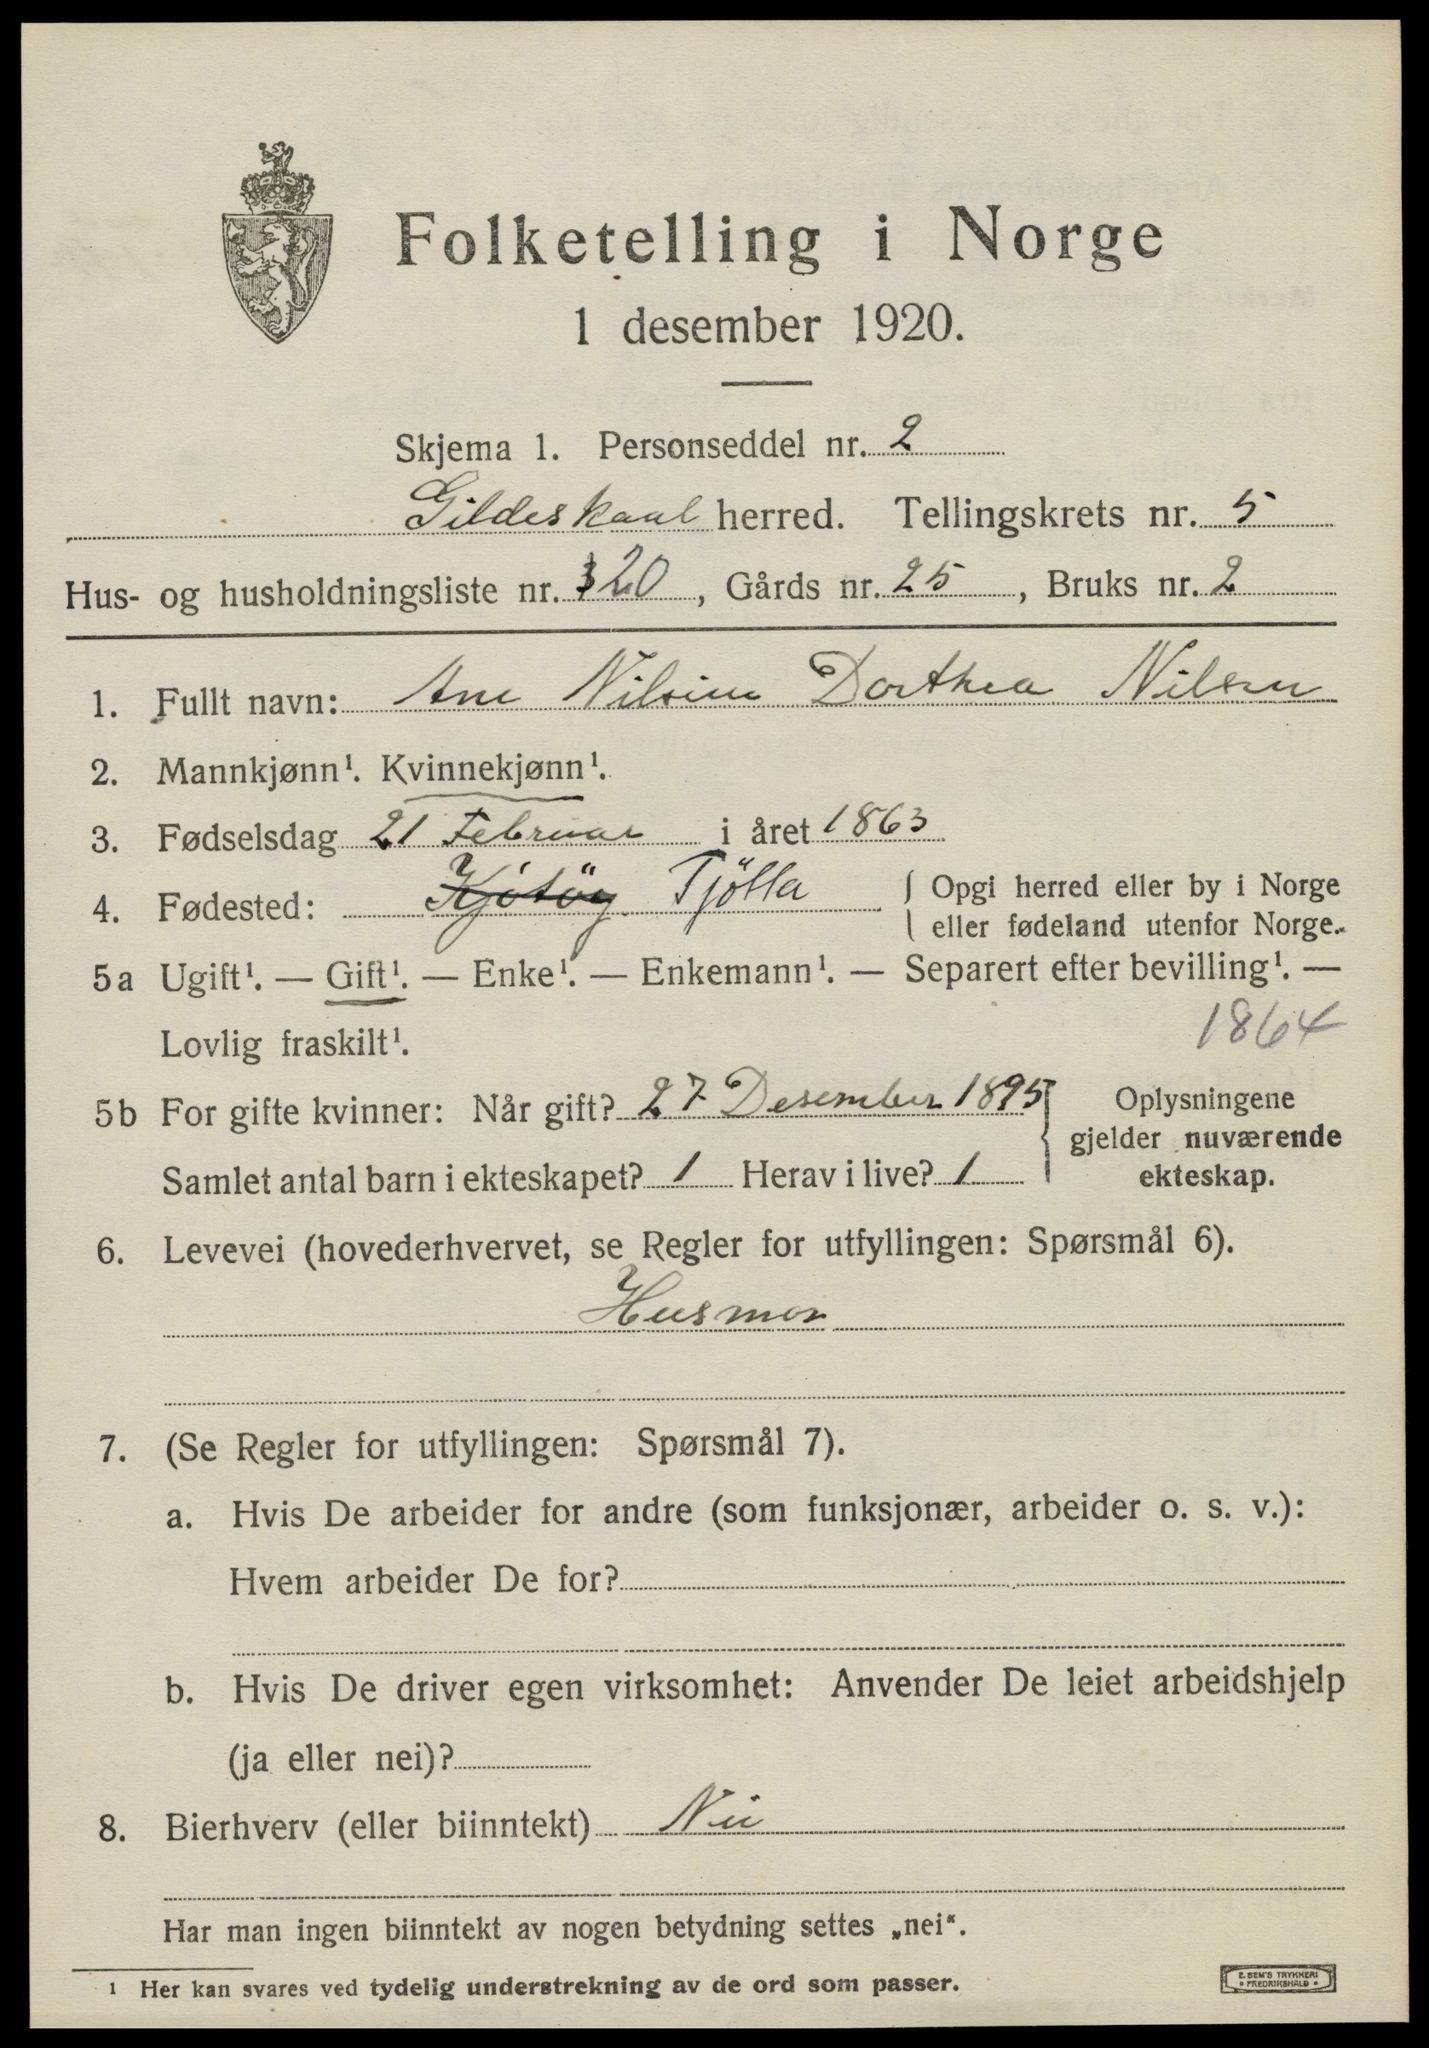 Folketelling i Norge
1 desember 1920.
Skjema 1. Personseddel nr. 2
Gildeskaal herred. Tellingskrets nr. 5
Hus- og husholdningsliste nr. 20, Gårds nr. 25, Bruks nr. 2
1. Fullt navn: Ane Nilsine Dorthea Nilsen
2. Mannkjønn¹. Kvinnekjønn¹.
3. Fødselsdag 21 Februar i året 1863
4. Fødested: Tjötta { Opgi herred eller by i Norge
eller fødeland utenfor Norge.
5a Ugift¹. — Gift¹. — Enke¹. — Enkemann¹. — Separert efter bevilling¹. —
Lovlig fraskilt¹. 1864
5b For gifte kvinner: Når gift? 27 Desember 1895 } Oplysningene
gjelder nuværende
Samlet antal barn i ekteskapet? 1 Herav i live? 1 ekteskap.
6. Levevei (hovederhvervet, se Regler for utfyllingen: Spørsmål 6).
Husmor
7. (Se Regler for utfyllingen: Spørsmål 7).
a. Hvis De arbeider for andre (som funksjonær, arbeider o. s. v.):
Hvem arbeider De for?
b. Hvis De driver egen virksomhet: Anvender De leiet arbeidshjelp
(ja eller nei)?
8. Bierhverv (eller biinntekt) Nei
Har man ingen biinntekt av nogen betydning settes „nei“.
¹ Her kan svares ved tydelig understrekning av de ord som passer.
E. SEM'S TRYKKERI
FREDRIKSHALD